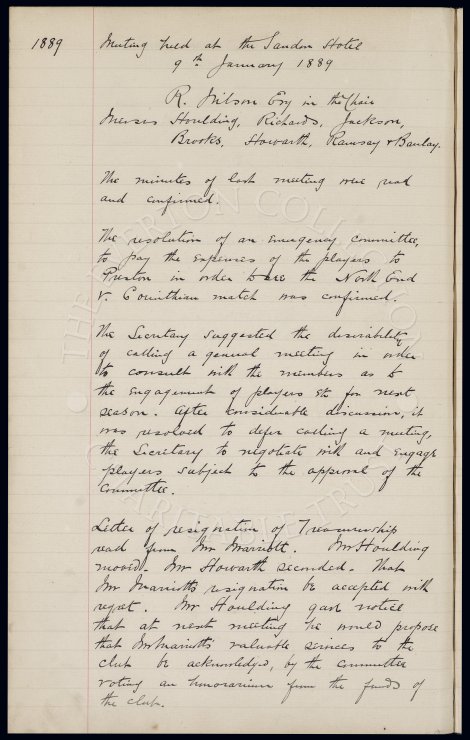 1889 Meeting held at the Sandon Hotel
9th January 1889
R. Wilson Esq in the Chair
Messrs Houlding, Richards, Jackson,
Brooks, Howarth, Ramsay & Barclay.
The minutes of last meeting were read
and confirmed.
The resolution of an Emergency Committee,
to pay the expenses of the players to
Preston in order to see the North End
v. Corinthian match was confirmed.
The Secretary suggested the desirability
of calling a general meeting in order
to consult with the members as to
the engagement of players etc for next
season. After considerable discussion, it
was resolved to defer calling a meeting,
the Secretary to negotiate with and engage
players subject to the approval of the
Committee.
Letter of resignation of Treasurership
read from Mr Marriott. Mr Houlding
moved. Mr Howarth seconded. That
Mr Marriotts resignation be accepted with
regret. Mr Houlding gave notice
that at next meeting he would propose
that Mr Marriotts valuable services to the
club be acknowledged, by the committee
voting an honorarium from the funds of
the club.
THE EVERTON COLLECTION
CHARITABLE TRUST